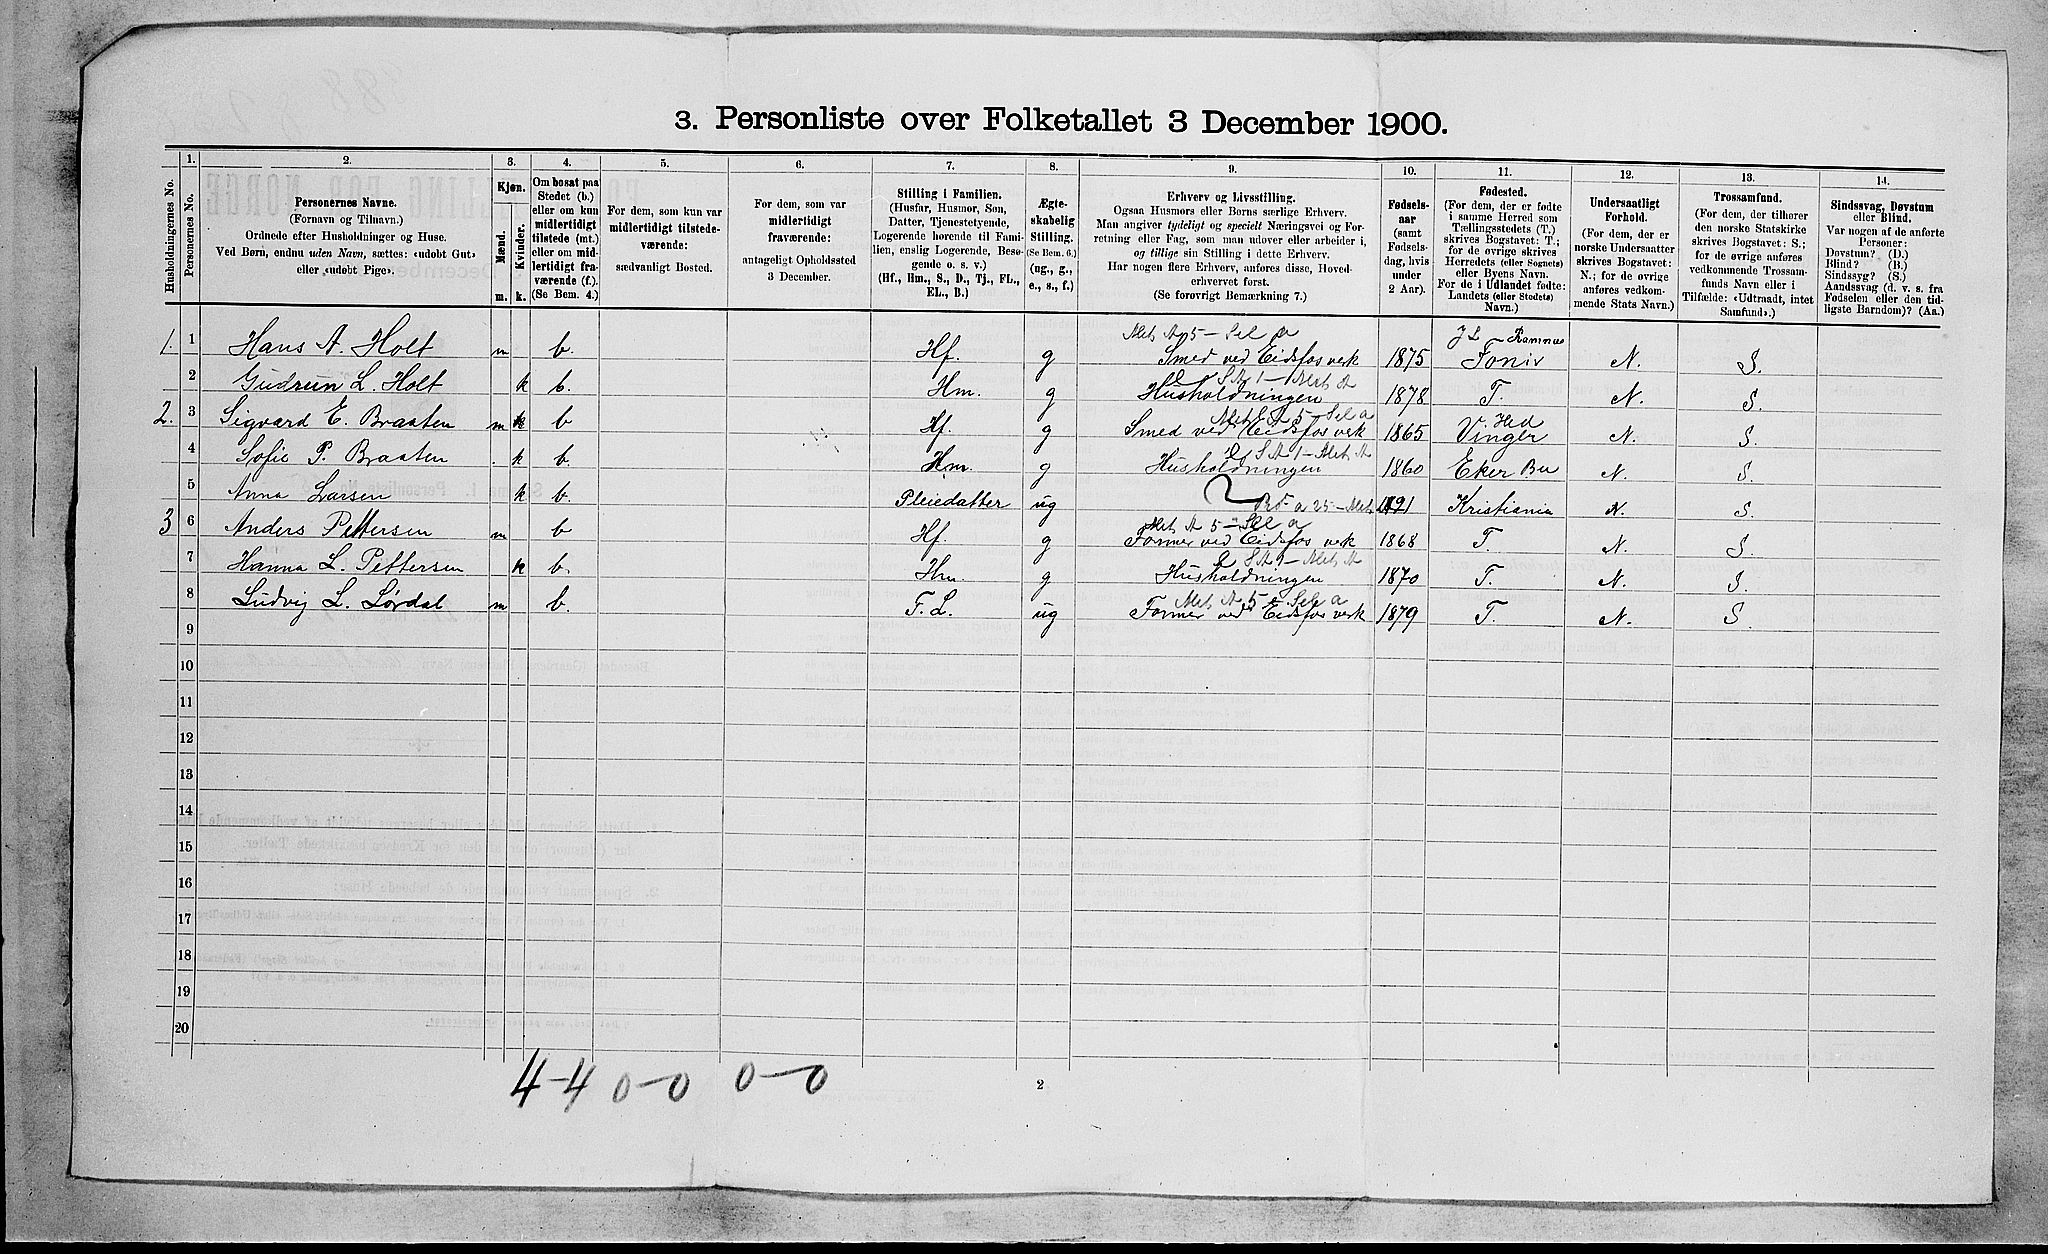 3. Personliste over Folketallet 3 December 1900.
Husholdningernes No.
1. Personernes No.
2. Personernes Navne. (Fornavn og Tilnavn.) Ordnede efter Husholdninger og Huse. Ved Børn, endnu uden Navn, sættes: «udøbt Gut» eller «udøbt Pige».
3. Kjøn. Mænd. m. Kvinder. k.
4. Om bosat paa Stedet (b.) eller om kun midlertidigt tilstede (mt.) eller om midlertidigt fraværende (f.). (Se Bem. 4.)
5. For dem, som kun var midlertidigt tilstedeværende: sædvanligt Bosted.
6. For dem, som var midlertidigt fraværende: antageligt Opholdssted 3 December.
7. Stilling i Familien. (Husfar, Husmor, Søn, Datter, Tjenestetyende, Logerende hørende til Familien, enslig Logerende, Besøgende o. s. v.) (Hf., Hm., S., D., Tj., FL., EL., B.)
8. Ægteskabelig Stilling. (Se Bem. 6.) (ug., g., e., s., f.)
9. Erhverv og Livsstilling. Ogsaa Husmors eller Børns særlige Erhverv. Man angiver tydeligt og specielt Næringsvei og Forretning eller Fag, som man udover eller arbeider i, og tillige sin Stilling i dette Erhverv. Har nogen flere Erhverv, anføres disse, Hovederhvervet først. (Se forøvrigt Bemærkning 7.)
10. Fødselsaar (samt Fødselsdag, hvis under 2 Aar).
11. Fødested. (For dem, der er fødte i samme Herred som Tællingsstedets (T.) skrives Bogstavet: T.; for de øvrige skrives Herredets (eller Sognets) eller Byens Navn. For de i Udlandet fødte: Landets (eller Stedets) Navn.)
12. Undersaatligt Forhold. (For dem, der er norske Undersaatter skrives Bogstavet: N.; for de øvrige anføres vedkommende Stats Navn.)
13. Trossamfund. (For dem, der tilhører den norske Statskirke skrives Bogstavet: S.; for de øvrige anføres vedkommende Trossamfunds Navn eller i Tilfælde: «Udtraadt, intet Samfund».)
14. Sindssvag, Døvstum eller Blind. Var nogen af de anførte Personer: Døvstum? (D.) Blind? (B.) Sindssyg? (S.) Aandssvag (d. v. s. fra Fødselen eller den tidligste Barndom)? (Aa.)
1. 1 Hans A. Holt m b. Hf. g Smed ved Eidsfos verk 1875 N. S.
2 Gudrun L. Holt k b. Hm. g Husholdningen 1878 T. N. S.
2. 3 Sigvard E. Braaten m b Hf. g Smed ved Eidsfos verk 1865 Vinger Hed N. S.
4 Sofie P. Braaten k b. Hm. g Husholdningen 1860 Eker Bu N. S.
5 Anna Larsen k b. Pleiedatter ug Kristiania N. S.
3 6 Anders Pettersen m b Hf. g Former ved Eidsfos verk 1868 T. N. S.
7 Hanna L. Pettersen k b. Hm. g Husholdningen 1870 T. N. S.
8 Ludvig L. Lørdal m b. F. L. ug Former ved Eidsfos verk 1879 T. N. S.
9
10
11
12
13
14
15
16
17
18
19
20
4-4 0-0 0-0
2